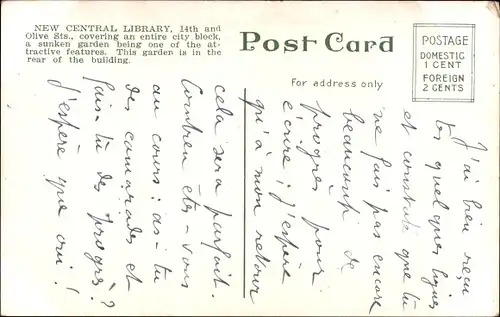 NEW CENTRAL LIBRARY, 14th and
Olive Sts., covering an entire city block,
a sunken garden being one of the at-
tractive features. This garden is in the
rear of the building.
Post Card
For address only
POSTAGE
DOMESTIC
1 CENT
FOREIGN
2 CENTS
J'ai bien reçu
tes quelques lignes
et constaté que tu
ne fais pas encore
beaucoup de
progrès pour
écrire; j'espère
qu'à mon retour
cela sera parfait.
Combien êtes-vous
au cours: as tu
des camarades et
fais-tu des progrès?
j'espère que oui!